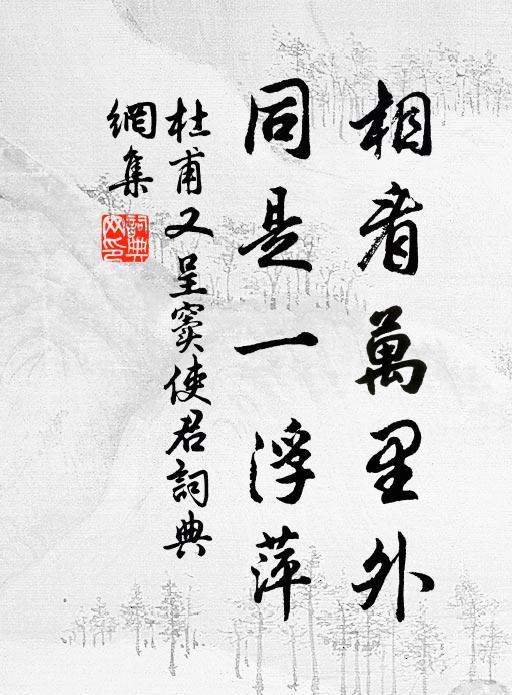 相看萬里外
同是一浮萍
杜甫又呈竇使君詞典
網集
詞典
網印